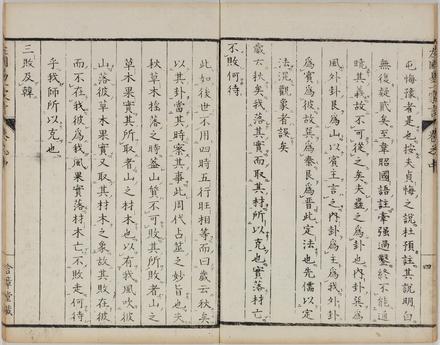 屯悔豫者是也按夫貞悔之說杜預註其說明白
無復疑貳矣至韋昭國語註牽强過鑿終不能通
曉其義故不可從之矣夫蠱之為卦也內卦巽為
風外卦艮為山以賓主言之內卦為主為我外卦
為賓為彼故我為秦艮為晋此定法也先儒以定
法混觀象者誤矣
歲云秋矣我落其實而取其材所以克也實落材亡
不敗何待
此如後世不用四時五行旺相等而曰歲云秋矣
以其卦當其時察其事此周代占筮之妙旨也夫
秋草木搖落之時蠱山質不可敗其所敗者山之
草木果實其所取者山之材木也以有我風吹彼
山落彼草木果實又取其材木之象故其敗在彼
而不在我彼為我風果實落材木亡不敗走何待
乎我師所以克也
三敗及韓
四